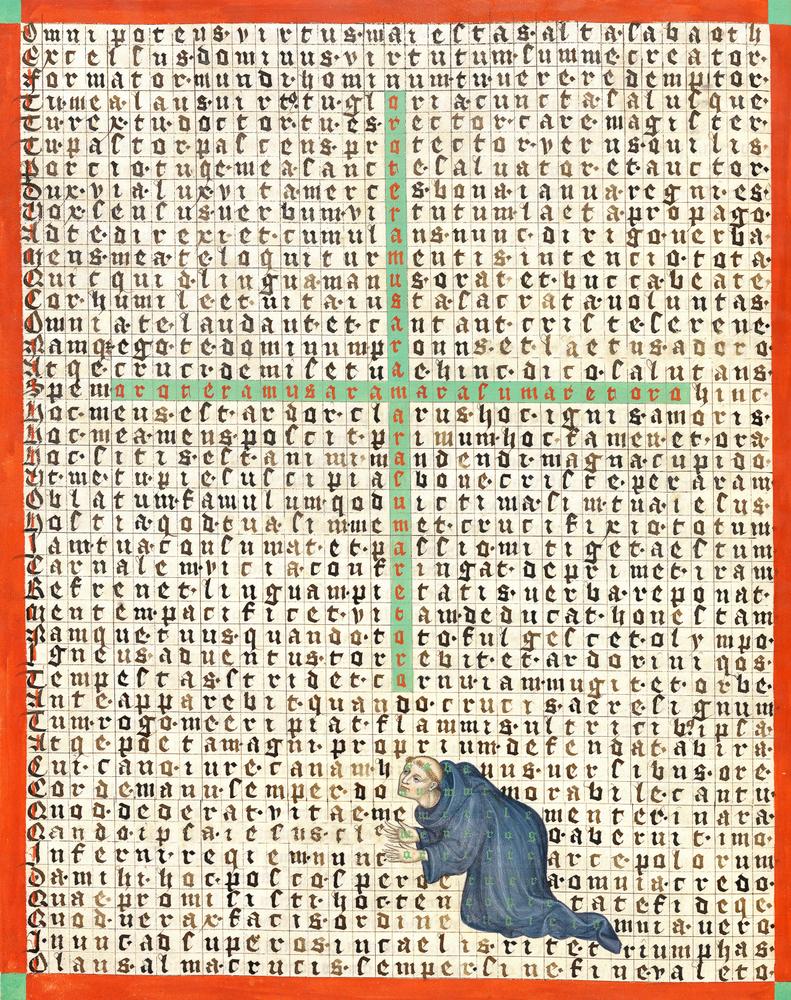 Omnipotens·virtus·maiestas·alta·sabaoth
Excelsus·dominus·virtutum·summe·creator·
Formator·mundi·hominum·tu·uere·redemptor·
Tu·mea·laus·uirtus·tu·gloria·cuncta·salus·que·
Tu·rex·tu·doctor·tu·es·rector·care·magister·
Tu·pastor·pascens·protector·verus·ouilis·
Portio·tuqe·mea·sancte·saluator·et·auctor·
Dux·via·lux·vita·merces·bona·ianua·regni·es·
Vox·sensus·uerbum·virtutum·laeta·propago·
Ad te·direxi·et·cumulans·nunc·dirigo·uerba·
Mens·mea·te·loquitur·mentis·intencio·tota·
Quicquid·lingua·manus·orat·et·bucca·beate·
Cor·humile·et·uita·iusta·sacrata·uoluntas·
Omnia·te·laudant·et·cantant·criste·serene·
Namqe·ego·te·dominum·pronus·et·laetus·adoro·
Atqe·cruci·demisse·tuae·hinc·dico·salutans·
Spem oro te ramus aram ara sumar et oro hinc·
Hoc·meus·est·ardor·clarus·hoc·ignis·amoris·
Hoc·mea·mens·poscit·primum·hoc·famen·et·ora·
Hoc·sitis·est·animi·mandendi·magna·cupido·
Ut·me·tu·pie·suscipias·bone·criste·per·aram·
Oblatum·famulum·qod·uictima·sim·tua·iesus·
Hostia·qod·tua·sim·met·crucifixio·totum
Iam·tua·consumat·et·passio·mitiget·aestum
Carnalem·vicia·confringat·deprimet·iram
Refrenet·linguam·pietatis·uerba·reponat·
Mentem·pacificet·vitam·deducat·honestam
Namque·tuus·quando·toto·fulgescet·olympo·
Igneus·aduentus·torrebit·et·ardor·iniqos·
Tempestas·stridet·cornu·iam·mugit·et·orbe·
Ante·apparebit·quando·crucis·aere·signum
Tum·rogo·me·eripiat·flammis·ultricib;·ipsa·
Atqe·poetam·agni·proprium·defendat·ab·ira·
Cui·cano·iure·canam·hrabanus·uersibus·ore·
Corde·manu·semper·memorabile·cantu·
Quod·dederat·vitae·me clementer·in·ara·
Qando·ipsa·iesus·clemens·rogo·ab·eruit·imo·
Inferni·reqiem·nunc arce·polorum
Da·mihi·hoc·posco·spero omnia·credo·
Quae·promisisti·hoc fideqe·
Quod·uerax·facis·ordine omnia·uero·
In·nunc·ad·superos·in·caelis·rite·triumphas·
O·laus·alma·crucis·semper·sine·fine·valeto·